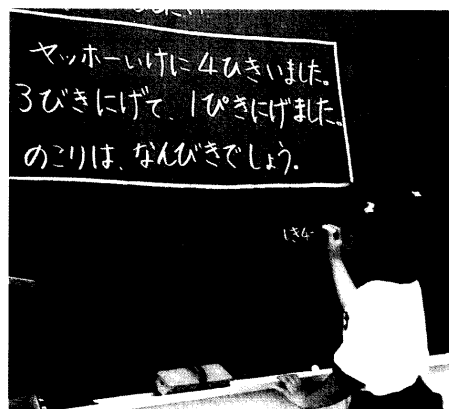 ヤッホーいけに4ひきいました。
3びきにげて、1ぴきにげました。
のこりは、なんびきでしょう。
しき4-